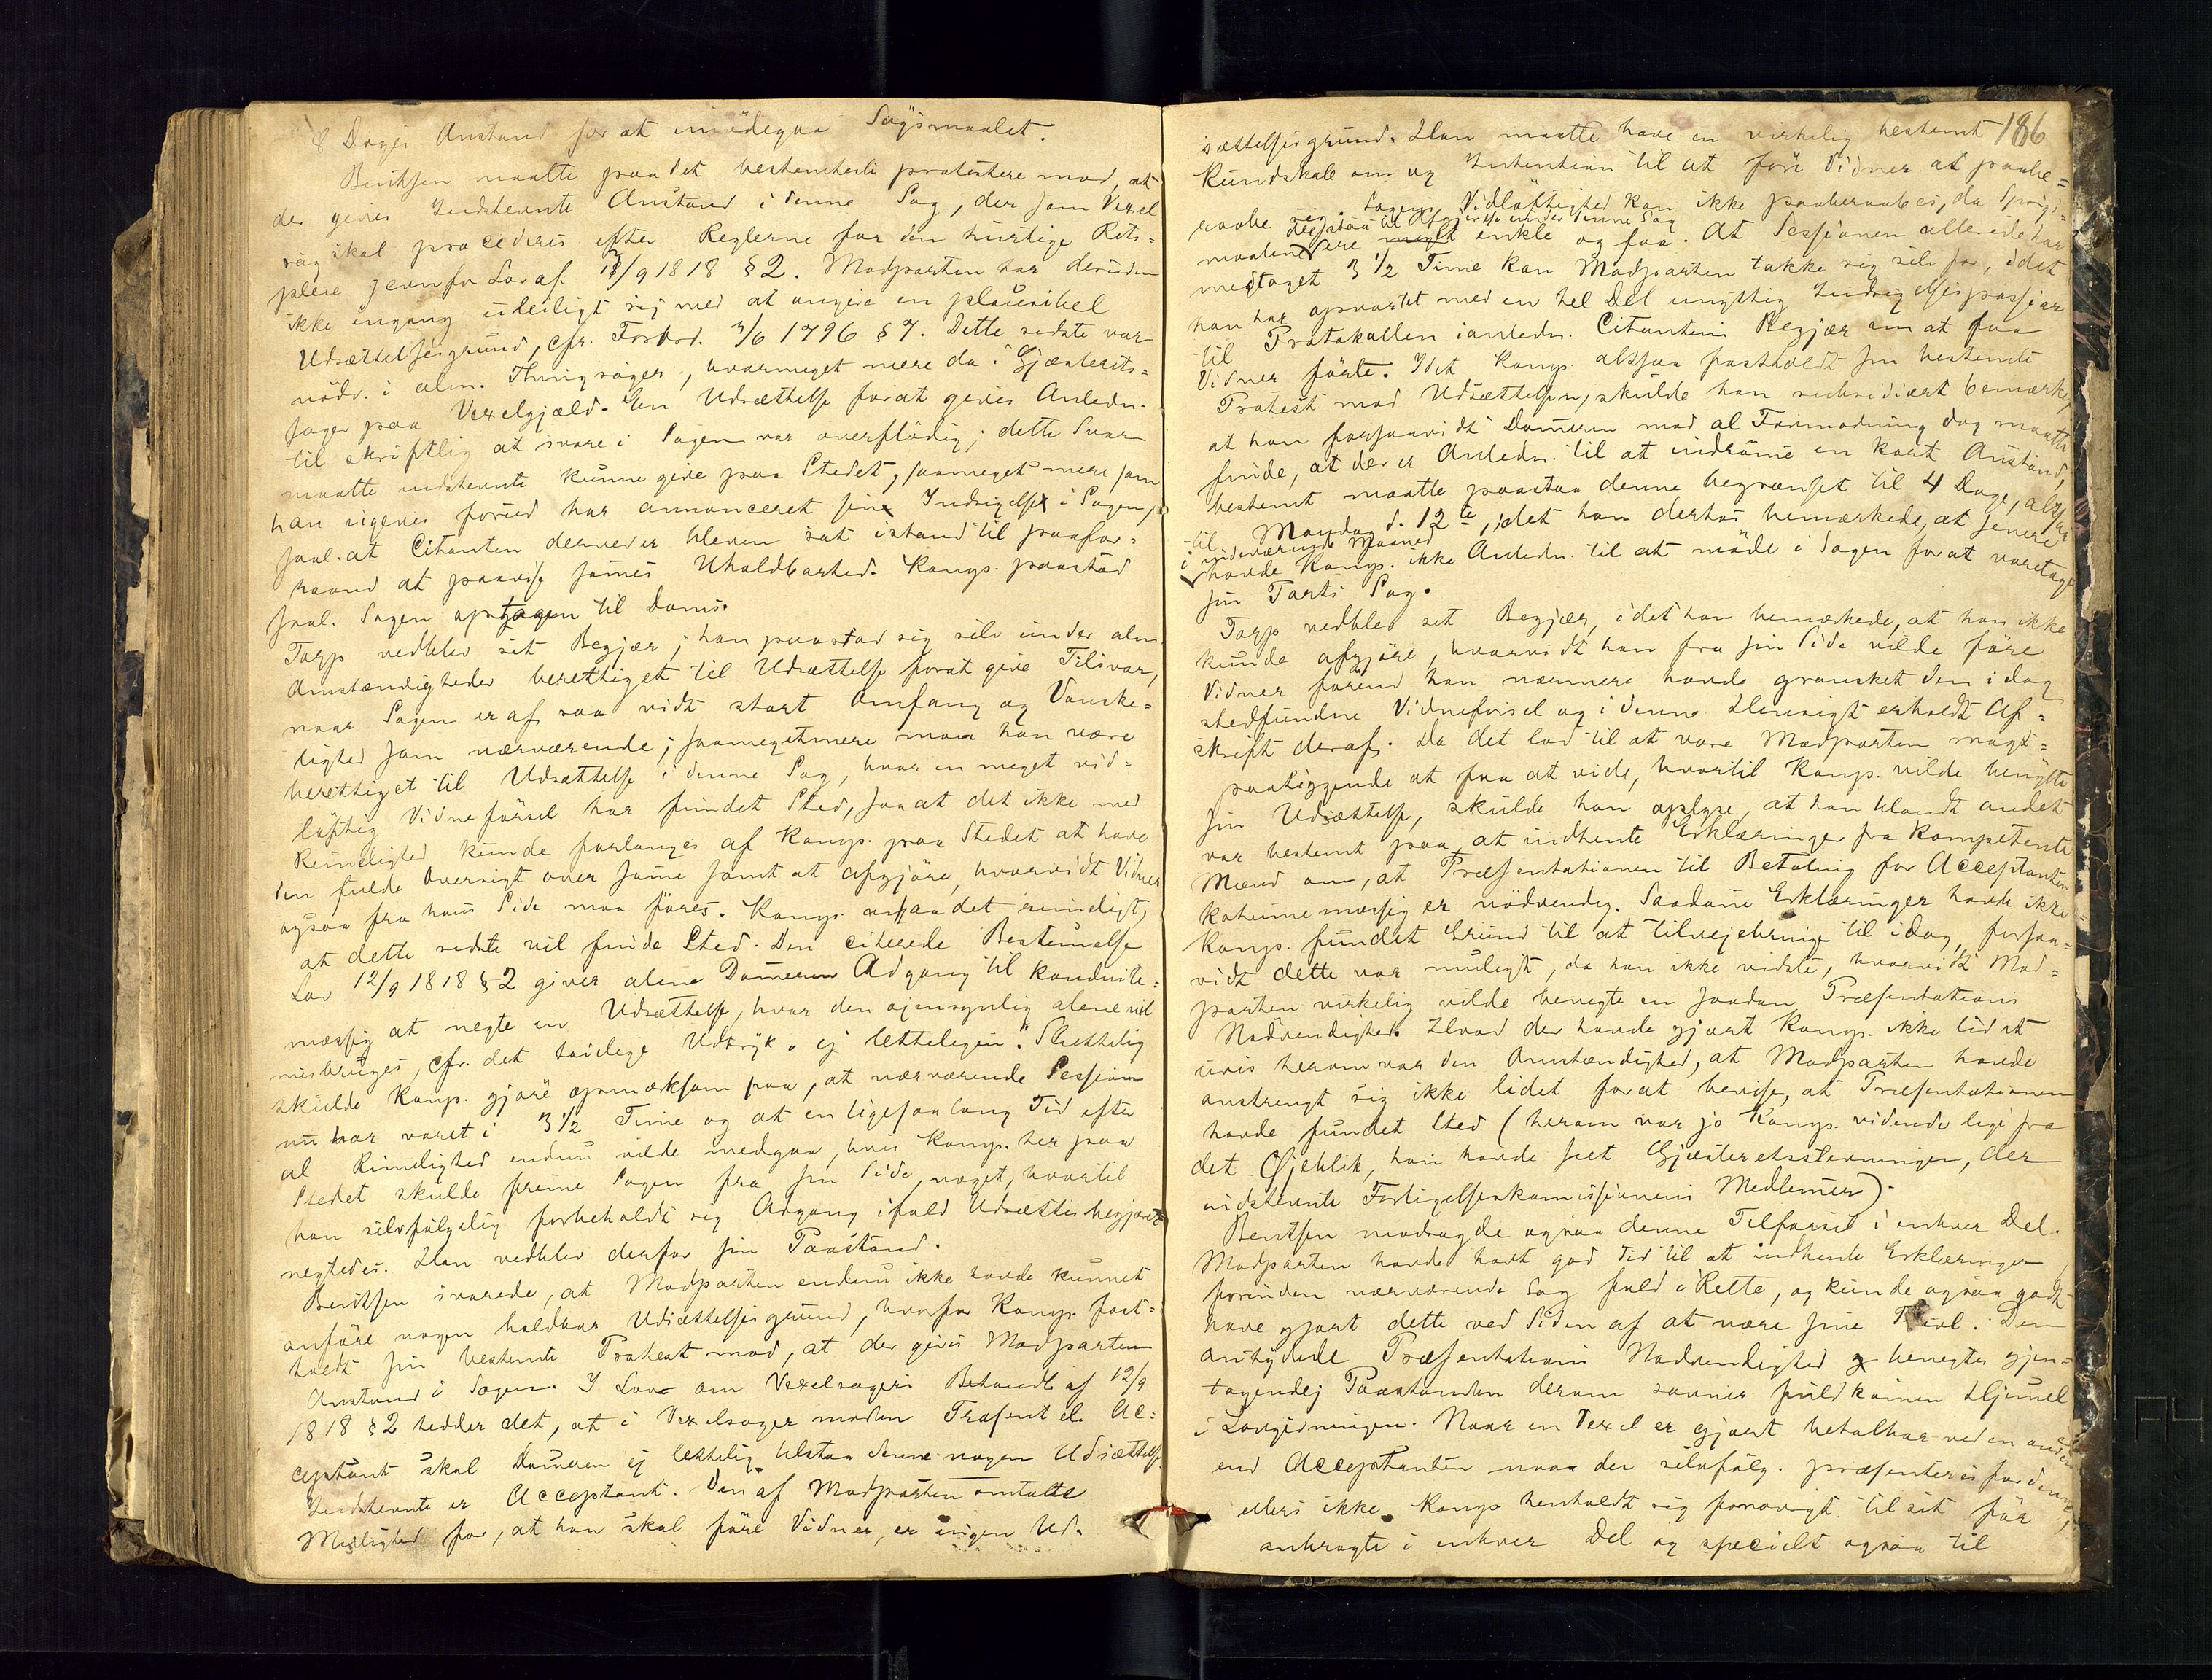 8 Dages Anstand for at imødegaa Søgsmaalet.
Bentsen maatte paa det bestemteste protestere mod, at
der gives Indstevnte Anstand i denne Sag, der som Vexel
sag skal procederes efter Reglerne for den hurtige Rets-
pleie jevnfør Lov af 12/9 1818 § 2. Modparten har desuden
ikke engang uleiliget sig med at angive en plausibel
Udsættelsesgrund, cfr. Forord. 3/6 1796 § 7. Dette sidste var
nødv. i alm. Thingsager, hvormeget mere da i Gjæsterets-
sager paa Vexelgjæld. En Udsættelse forat gives Anledn.
til skriftlig at svare i Sagen var overflødig; dette Svar
maatte indstevnte kunne give paa Stedet, saameget mere som
han sigenes forud har annonceret sine Indsigelse i Sagen,
saal. at Citanten derved er bleven sat istand til paafor-
haand at paavise sammes Uholdbarhed. Komp. paastod
saal. Sagen optagen til Doms.
Torp vedblev sit Begjær; han paastod sig selv under alm.
Omstændigheder berettiget til Udsættelse forat give Tilsvar,
naar Sagen er af saa vidt stort Omfang og Vanske-
lighed som nærværende; saameget mere maa han være
berettiget til Udsættelse i denne Sag, hvor en meget vid-
løftig Vidneførsel har fundet Sted, saa at det ikke med
Rimelighed kunde forlanges af Komp. paa Stedet at have
den fulde Oversigt over samme samt at afgjøre, hvorvidt Vidner
ogsaa fra hans Side maa føres. Komp. ansaa det rimeligt,
at dette sidste vil finde Sted. Den citerede Bestemmelse
Lov 12/9 1818 § 2 giver alene Dommeren Adgang til konduite-
mæssig at negte en Udsættelse, hvor den øiensynlig alene vil
misbruges, cfr. det tvilege Udtryk "ej lettelegen". Sluttelig
skulde Komp. gjøre opmærksom paa, at nærværende Session
nu har varet i 3 1/2 Time og at en ligesaa lang Tid efter
al Rimelighed endnu vilde medgaa, hvis Komp. her paa
Stedet skulde fremme Sagen fra sin Side, noget, hvortil
han selvfølgelig forbeholdt sig Adgang ifald Udsættelsesbegjæret
negtedes. Han vedblev derfor sin Paastand.
Bentsen svarede, at Modparten endnu ikke havde kunnet
anføre nogen holdbar Udsættelsesgrund, hvorfor Komp. fast-
holdt sin bestemte Protest mod, at der gives Modparten
Anstand i Sagen. I Lov om Vexelsagers Behandl. af 12/9
1818 § 2 hedder det, at i Vexelsager mod en Trasent el. Ac-
ceptant skal Dommeren ej lettelig tilstaa denne nogen Udsættelse.
Indstevnte er Acceptant. Den af Modparten omtalte
Mulighed for, at han skal føre Vidner, er ingen Ud-
186
sættelsesgrund. Han maatte have en virkelig bestemt
Kundskab om og Intention til at føre Vidner at paabe-
raabe sig. Sagens Vidløftighed kan ikke paaberaabes, da Spørgs-
der staa til Afgjørelse under denne Sag
maalene ere meget enkle og faa. At Sessionen allerede har
medtaget 3 1/2 Time kan Modparten takke sig selv for, idet
han har opvartet med en hel Del unyttig Indsigelsespassiar
til Protokollen ianledn. Citantens Begjær om at faa
Vidner førte. Idet Komp. altsaa fastholdt sin bestemte
Protest mod Udsættelsen, skulde han subsidiært bemærke,
at han forsaavidt Dommeren mod al Formodning dog maatte
finde, at der er Anledn. til at indrømme en kort Anstand,
bestemt maatte paastaa denne begrænset til 4 Dage, altsaa
til Mandag d. 12te, idet han derhos bemærkede, at senere
i indeværende Maaned
havde Komp. ikke Anledn. til at møde i Sagen for at varetage
sin Parts Sag.
Torp vedblev sit Begjær, idet han bemærkede, at han ikke
kunde afgjøre, hvorvidt han fra sin Side vilde føre
Vidner førend han nærmere havde gransket den i dag
stedfundne Vidneførsel og i denne Hensigt erholdt Af-
skrift deraf. Da det lod til at være Modparten magt-
paaliggende at faa at vide, hvortil Komp. vilde benytte
sin Udsættelse, skulde han oplyse, at han blandt andet
var bestemt paa at indhente Erklæringer fra kompetente
Mænd om, at Præsentationen til Betaling for Acceptanten
kutumemæssig er nødvendig. Saadanne Erklæringer havde ikke
Komp. fundet Grund til at tilvejebringe til idag, forsaa-
vidt dette var muligt, da han ikke vidste, hvorvidt Mod-
parten virkelig vilde benegte en saadan Præsentations
Nødvendighed. Hvad der havde gjort Komp. ikke lidet
uvis herom var den Omstændighed, at Modparten havde
anstrengt sig ikke lidet forat bevise, at Præsentationen
havde fundet Sted (herom var jo Komp. vidende lige fra
det Øjeblik, han havde seet Gjæsteretsstevningen, der
indstevnte Forligelseskommissionens Medlemmer).
Bentsen modsagde ogsaa denne Tilførsel i enhver Del.
Modparten havde havt god Tid til at indhente Erklæringer
forinden nærværende Sag faldt i Rette, og kunde ogsaa godt
have gjort dette ved Siden af at nære sine Tvivl. Den
antydede Præsentations Nødvendighed benegtes gjen-
tagende; Paastanden derom savner fuldkommen Hjemmel
i Lovgivningen. Naar en Vexel er gjort betalbar ved en anden
end Acceptanten maa den selvfølg. præsenteres for denne,
ellers ikke. Komp. henholdt sig forøvrigt til sit før
anbragte i enhver Del og specielt ogsaa til